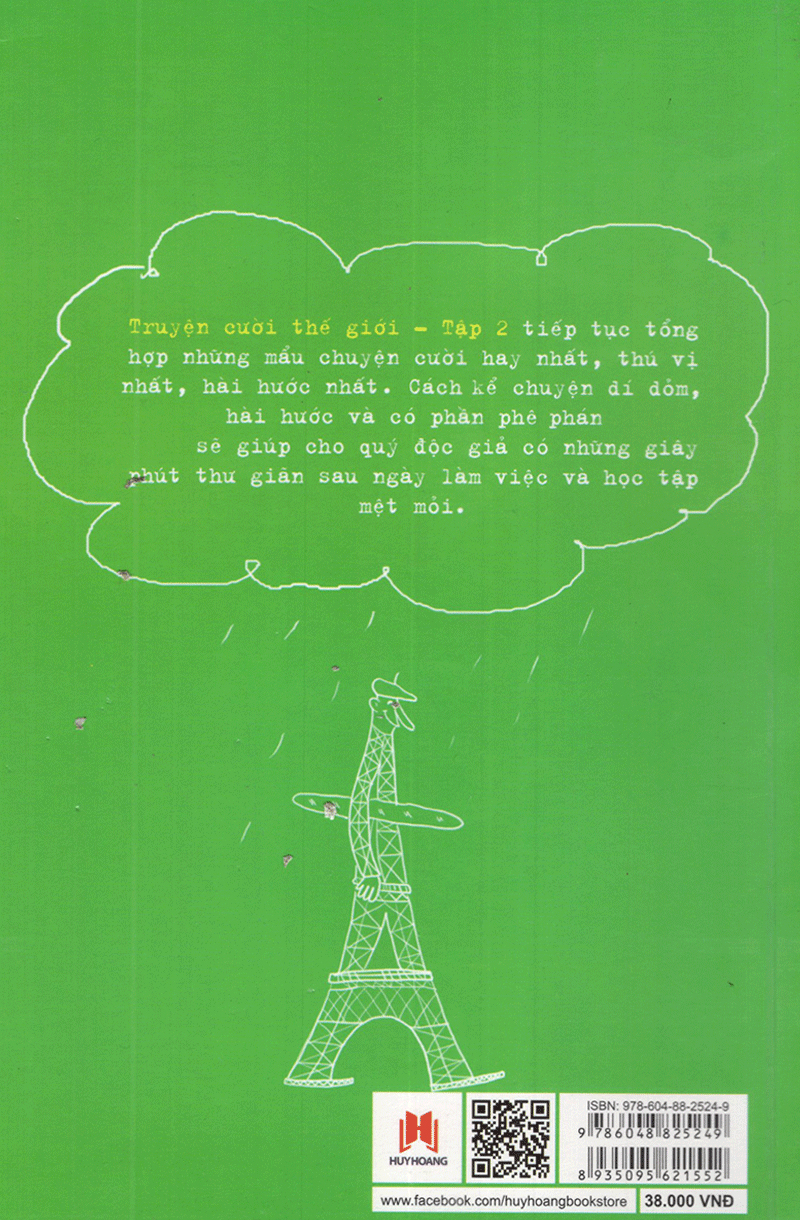 Truyện cười thế giới - Tập 2 tiếp tục tổng
hợp những mẩu chuyện cười hay nhất, thú vị
nhất, hài hước nhất. Cách kể chuyện dí dỏm,
hài hước và có phần phê phán
sẽ giúp cho quý độc giả có những giây
phút thư giãn sau ngày làm việc và học tập
mệt mỏi.
HUYHOANG
ISBN: 978-604-88-2524-9
9 786048 825249
8 935095 621552
www.facebook.com/huyhoangbookstore
38.000 VNĐ